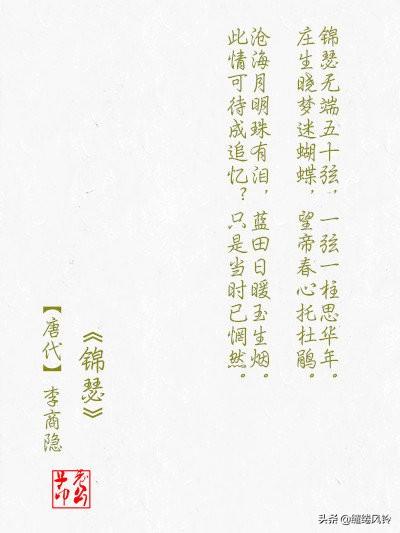 锦瑟无端五十弦，一弦一柱思华年。
庄生晓梦迷蝴蝶，望帝春心托杜鹃。
沧海月明珠有泪，蓝田日暖玉生烟。
此情可待成追忆？只是当时已惘然。
《锦瑟》
【唐代】李商隐
头条 @缱绻风铃